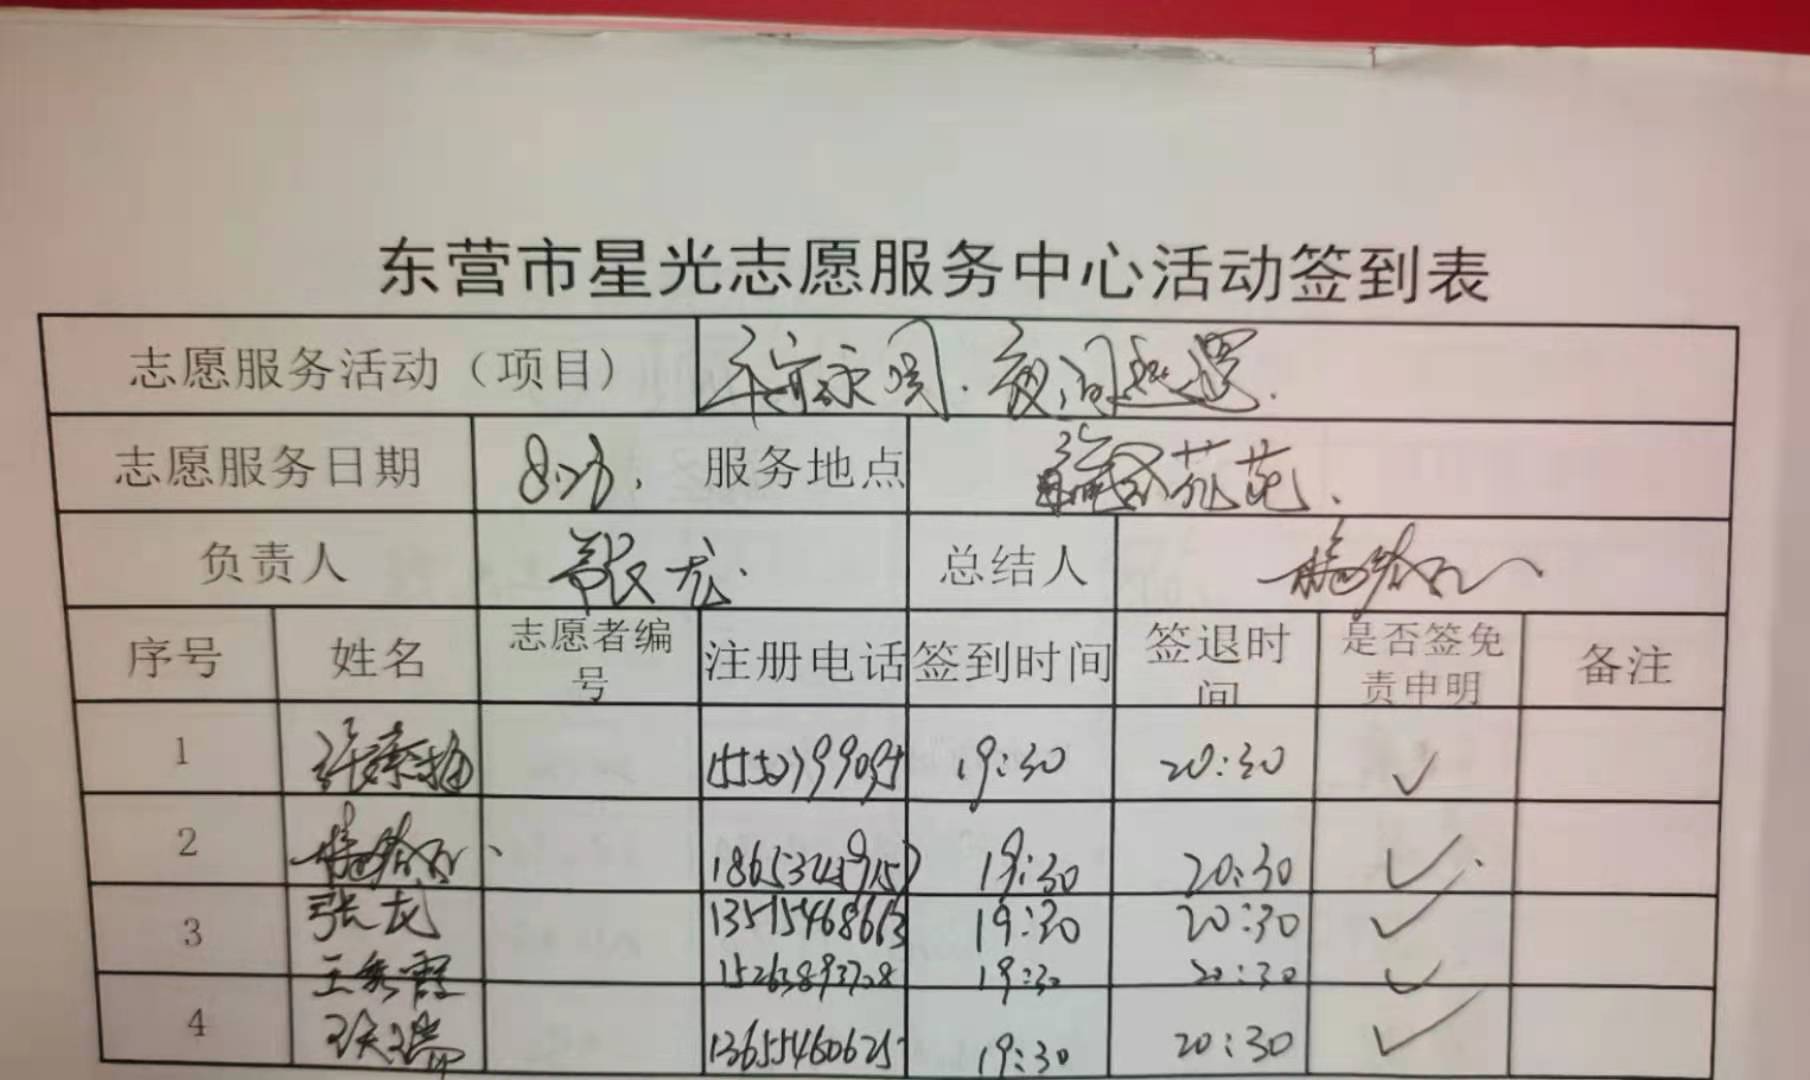 东营市星光志愿服务中心活动签到表
志愿服务活动（项目） 夜间巡逻.
志愿服务日期 服务地点 苑.
负责人 张龙. 总结人
序号 姓名 志愿者编号 注册电话 签到时间 签退时间 是否签免责申明 备注
1 19:30 20:30 ✓
2 19:30 20:30 ✓
3 张龙 13515468663 19:30 20:30 ✓
王秀霞 15263893728 19:30 20:30 ✓
4 13655460625 19:30 20:30 ✓